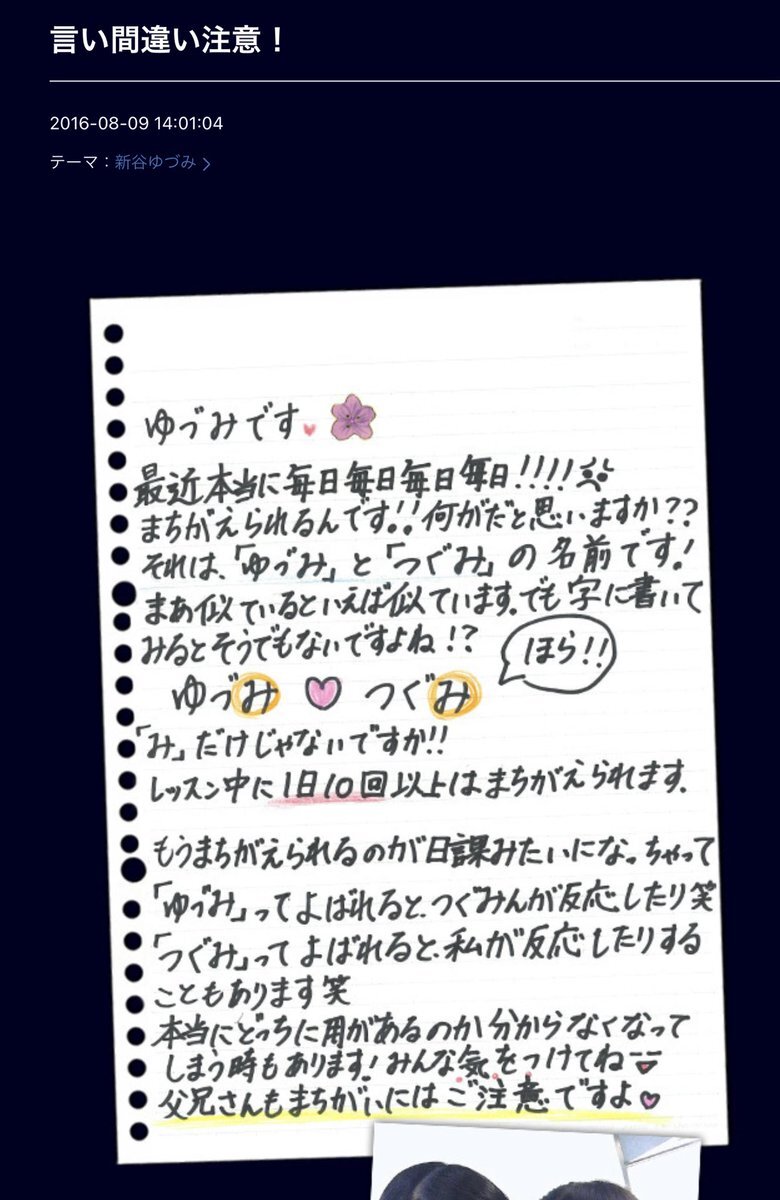 言い間違い注意！
2016-08-09 14:01:04
テーマ：新谷ゆづみ
ゆづみです
最近本当に毎日毎日毎日毎日!!!!
まちがえられるんです!!何がだと思いますか??
それは、「ゆづみ」と「つぐみ」の名前です!
まあ似ているといえば似ています。でも字に書いて
みるとそうでもないですよね!?
ほら!!
ゆづみ つぐみ
「み」だけじゃないですか!!
レッスン中に1日10回以上はまちがえられます。
もうまちがえられるのが日課みたいになっちゃって
「ゆづみ」ってよばれると、つぐみんが反応したり笑
「つぐみ」ってよばれると、私が反応したりする
こともあります笑
本当にどっちに用があるのか分からなくなって
しまう時もあります!みんな気をつけてねー
父兄さんもまちがいにはご注意ですよ